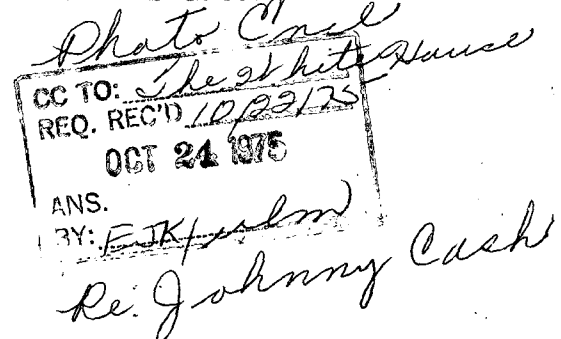 Photo Encl
CC TO: The White House
REQ. REC'D 10/22/75
OCT 24 1975
ANS.
BY: EJK/
Re: Johnny Cash